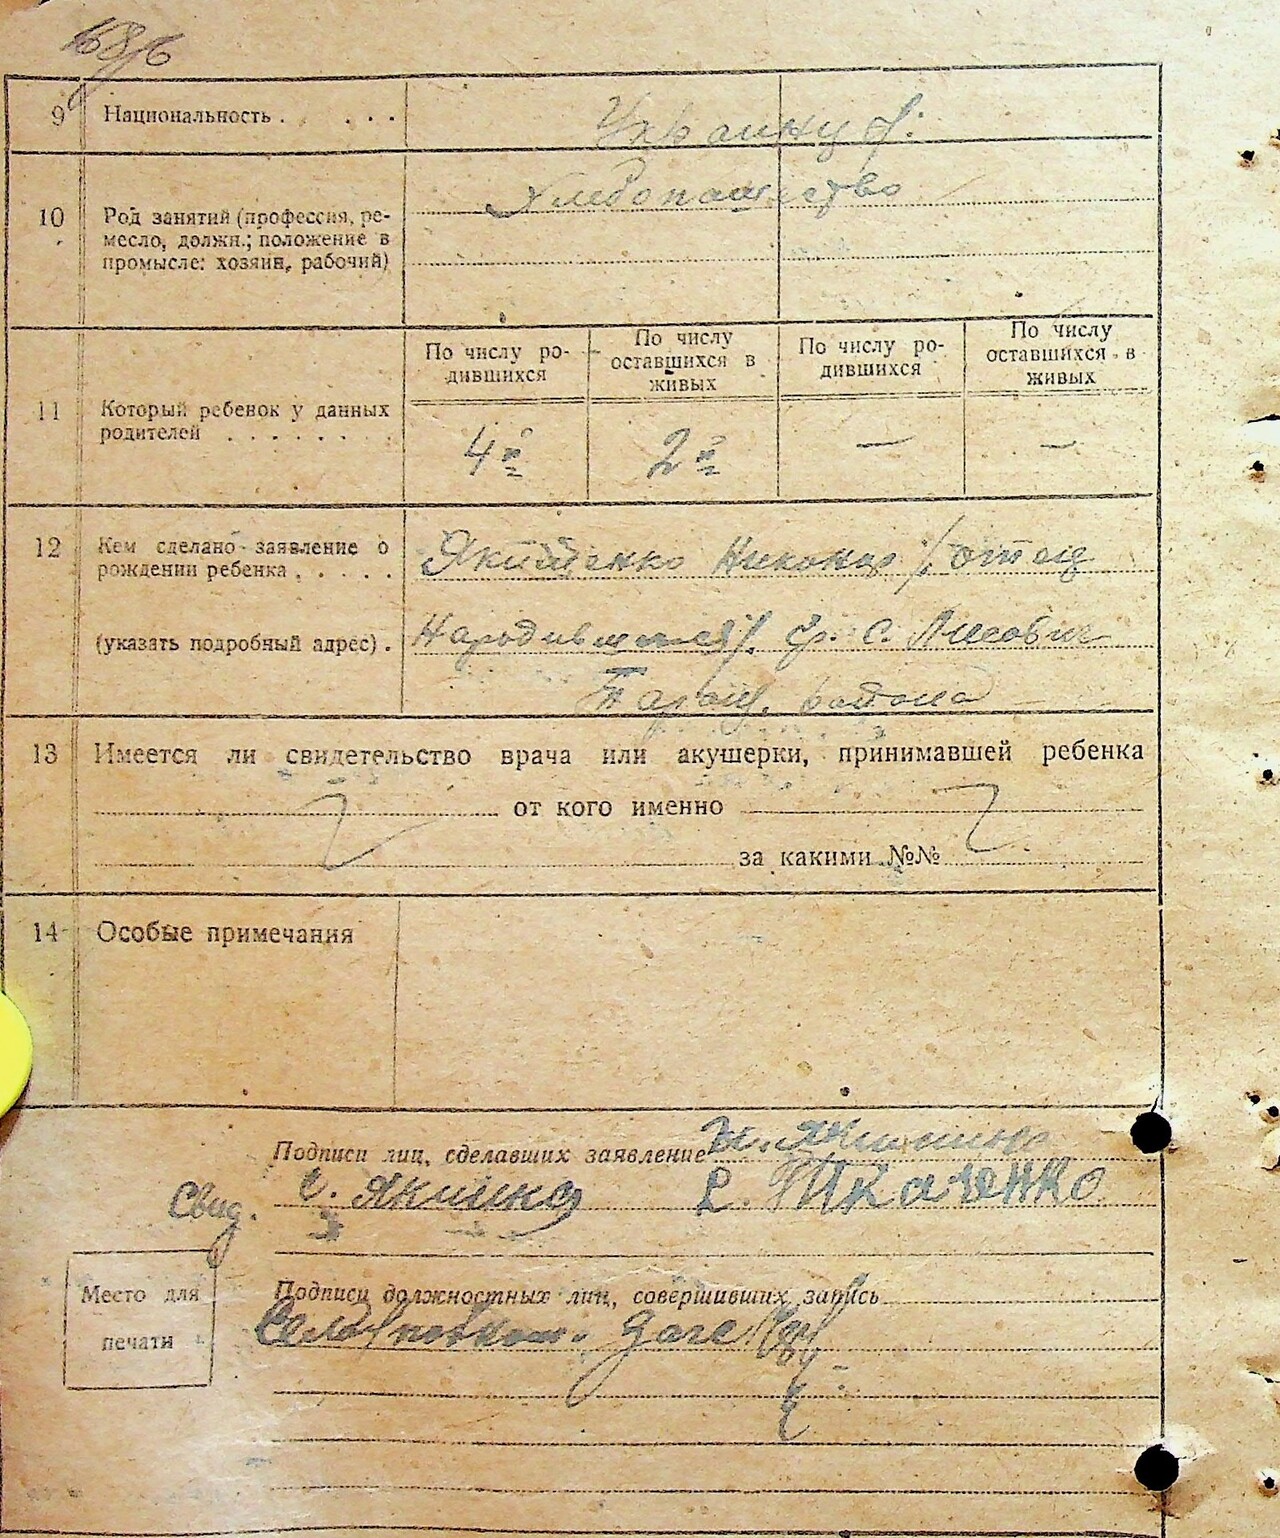 9 Национальность . . . . Украинцы
10 Род занятий (профессия, ре-
месло, должн.; положение в
промысле: хозяин, рабочий)
Хлебопашество
По числу ро-
дившихся
По числу
оставшихся в
живых
По числу ро-
дившихся
По числу
оставшихся в
живых
11 Который ребенок у данных
родителей . . . . . . .
4й 2й — —
12 Кем сделано заявление о
рождении ребенка . . . . .
Якименко Никонор /: отец
(указать подробный адрес) .
гр. с.
района
13 Имеется ли свидетельство врача или акушерки, принимавшей ребенка
от кого именно
за какими №№
14 Особые примечания
Подписи лиц, сделавших заявление Н.
Свид. Р. Ткаченко
Место для
печати
Подписи должностных лиц, совершивших запись